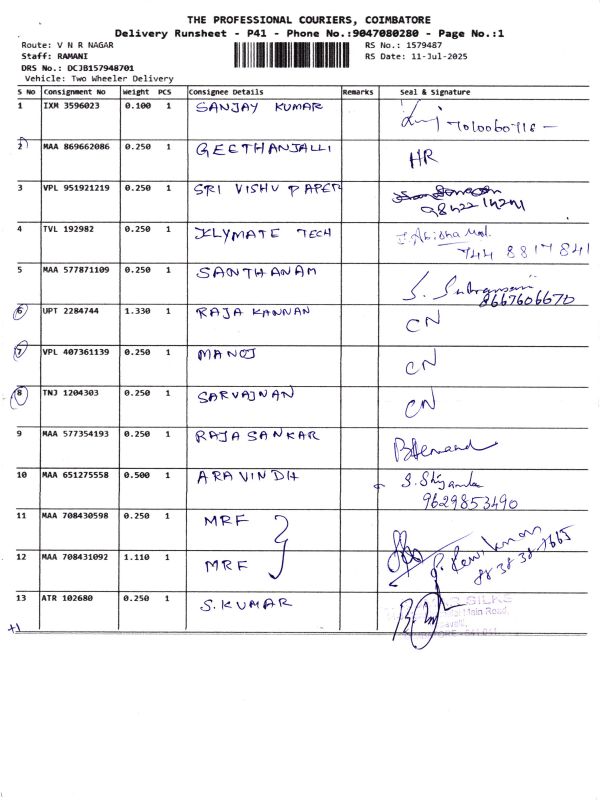 THE PROFESSIONAL COURIERS, COIMBATORE
Delivery Runsheet - P41 - Phone No.:9047080280 - Page No.:1
Route: V N R NAGAR RS No.: 1579487
Staff: RAMANI RS Date: 11-Jul-2025
DRS No.: DCJB157948701
Vehicle: Two Wheeler Delivery
S No Consignment No Weight PCS Consignee Details Remarks Seal & Signature
1 IXM 3596023 0.100 1 SANJAY KUMAR
2 MAA 869662086 0.250 1 GEETHANJALLI HR
3 VPL 951921219 0.250 1 SRI VISHU PAPER
4 TVL 192982 0.250 1 KLYMATE TECH
744 8817841
5 MAA 577871109 0.250 1 SANTHANAM
8667606670
6 UPT 2284744 1.330 1 RAJA KANNAN CN
7 VPL 407361139 0.250 1 MANOJ CN
8 TNJ 1204303 0.250 1 SARVAJNAN CN
9 MAA 577354193 0.250 1 RAJA SANKAR
10 MAA 651275558 0.500 1 ARAVINDH
9629853490
11 MAA 708430598 0.250 1 MRF
12 MAA 708431092 1.110 1 MRF
13 ATR 102680 0.250 1 S.KUMAR
SILKS
Main Road,
+1